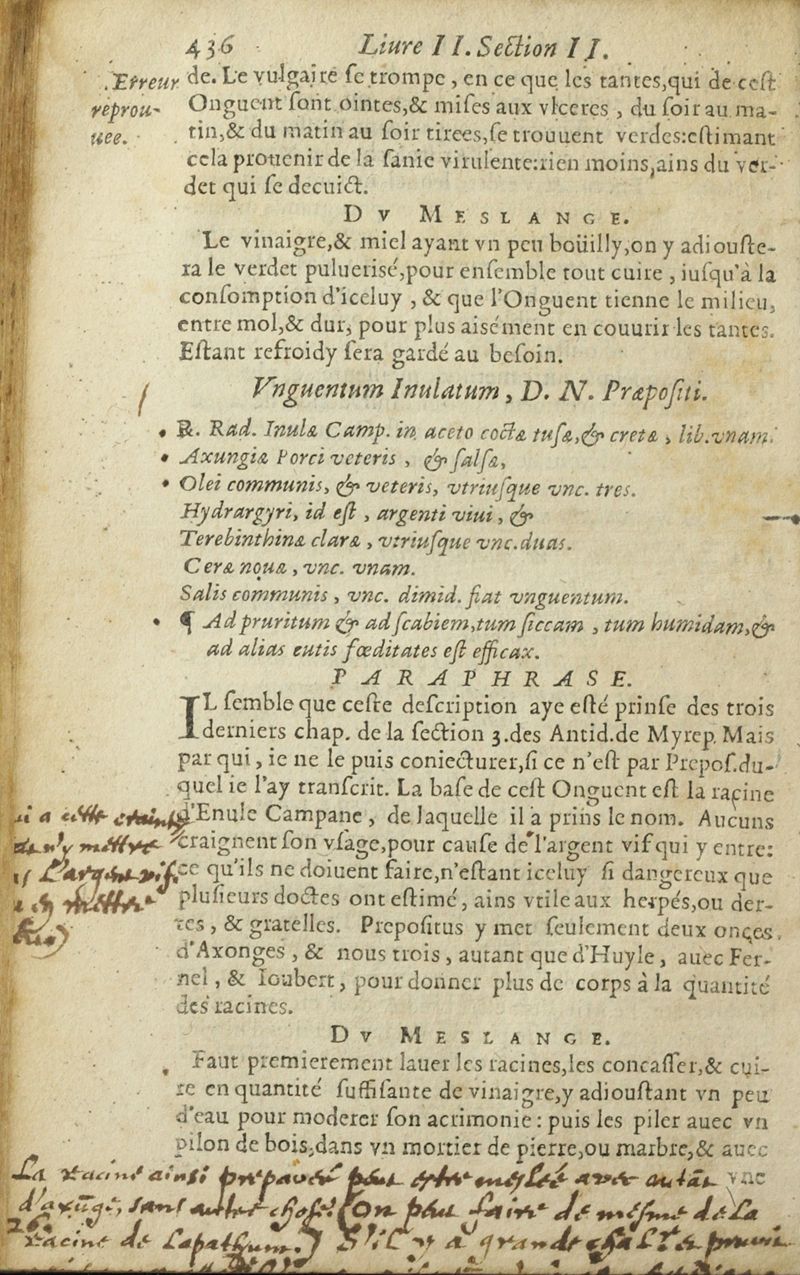 436 Liure II. Section II.
Erreur reprou-uee.
de. Le vulgaire se trompe, en ce que les tantes,qui de cest
Onguent sont ointes,& mises aux vlceres, du soir au ma-
tin,& du matin au soir tirees,se trouuent verdes:estimant
cela prouenir de la sanie virulente:rien moins,ains du ver-
det qui se decuict.
DV MESLANGE.
Le vinaigre,& miel ayant vn peu boüilly,on y adiouste-
ra le verdet puluerisé,pour ensemble tout cuire, iusqu'à la
consomption d'iceluy, & que l'Onguent tienne le milieu,
entre mol,& dur, pour plus aisément en couurir les tantes.
Estant refroidy sera gardé au besoin.
Vnguentum Inulatum, D. N. Præpositi.
℞. Rad. Inulæ Camp. in aceto coctæ tusæ,& cretæ, lib.vnam.
Axungiæ Porci veteris, & salsæ,
Olei communis, & veteris, vtriusque vnc. tres.
Hydrargyri, id est, argenti viui, &
Terebinthinæ claræ, vtriusque vnc.duas.
Ceræ nouæ, vnc. vnam.
Salis communis, vnc. dimid. fiat vnguentum.
¶ Ad pruritum & ad scabiem,tum siccam, tum humidam,&
ad alias cutis fœditates est efficax.
PARAPHRASE.
IL semble que ceste description aye esté prinse des trois
derniers chap. de la section 3.des Antid.de Myrep. Mais
par qui, ie ne le puis coniecturer,si ce n'est par Prepos.du-
quel ie l'ay transcrit. La base de cest Onguent est la racine
d'Enule Campane, de laquelle il a prins le nom. Aucuns
craignent son vsage,pour cause de l'argent vif qui y entre:
ce qu'ils ne doiuent faire,n'estant iceluy si dangereux que
plusieurs doctes ont estimé, ains vtile aux herpés,ou der-
tes, & gratelles. Prepositus y met seulement deux onçes,
d'Axonges, & nous trois, autant que d'Huyle, auec Fer-
nel, & Ioubert, pour donner plus de corps à la quantité
des racines.
DV MESLANGE.
Faut premierement lauer les racines,les concasser,& cui-
re en quantité suffisante de vinaigre,y adioustant vn peu
d'eau pour moderer son acrimonie: puis les piler auec vn
pilon de bois,dans vn mortier de pierre,ou marbre,& auec
La racine ainsi preparée peut estre meslée avec autāt vne
d'axūge, sans autre chose. On peut faire de mesme de la
racine de Lapathum.